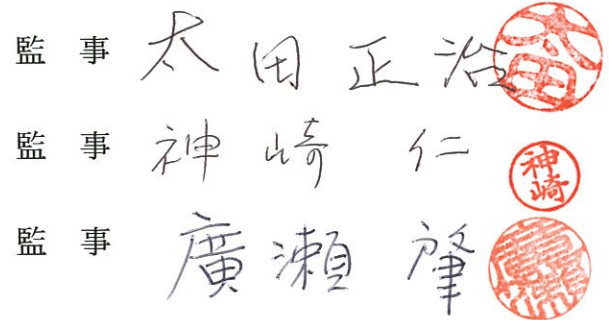 監 事 太田正治 太田
監 事 神崎 仁 神崎
監 事 廣瀬 肇